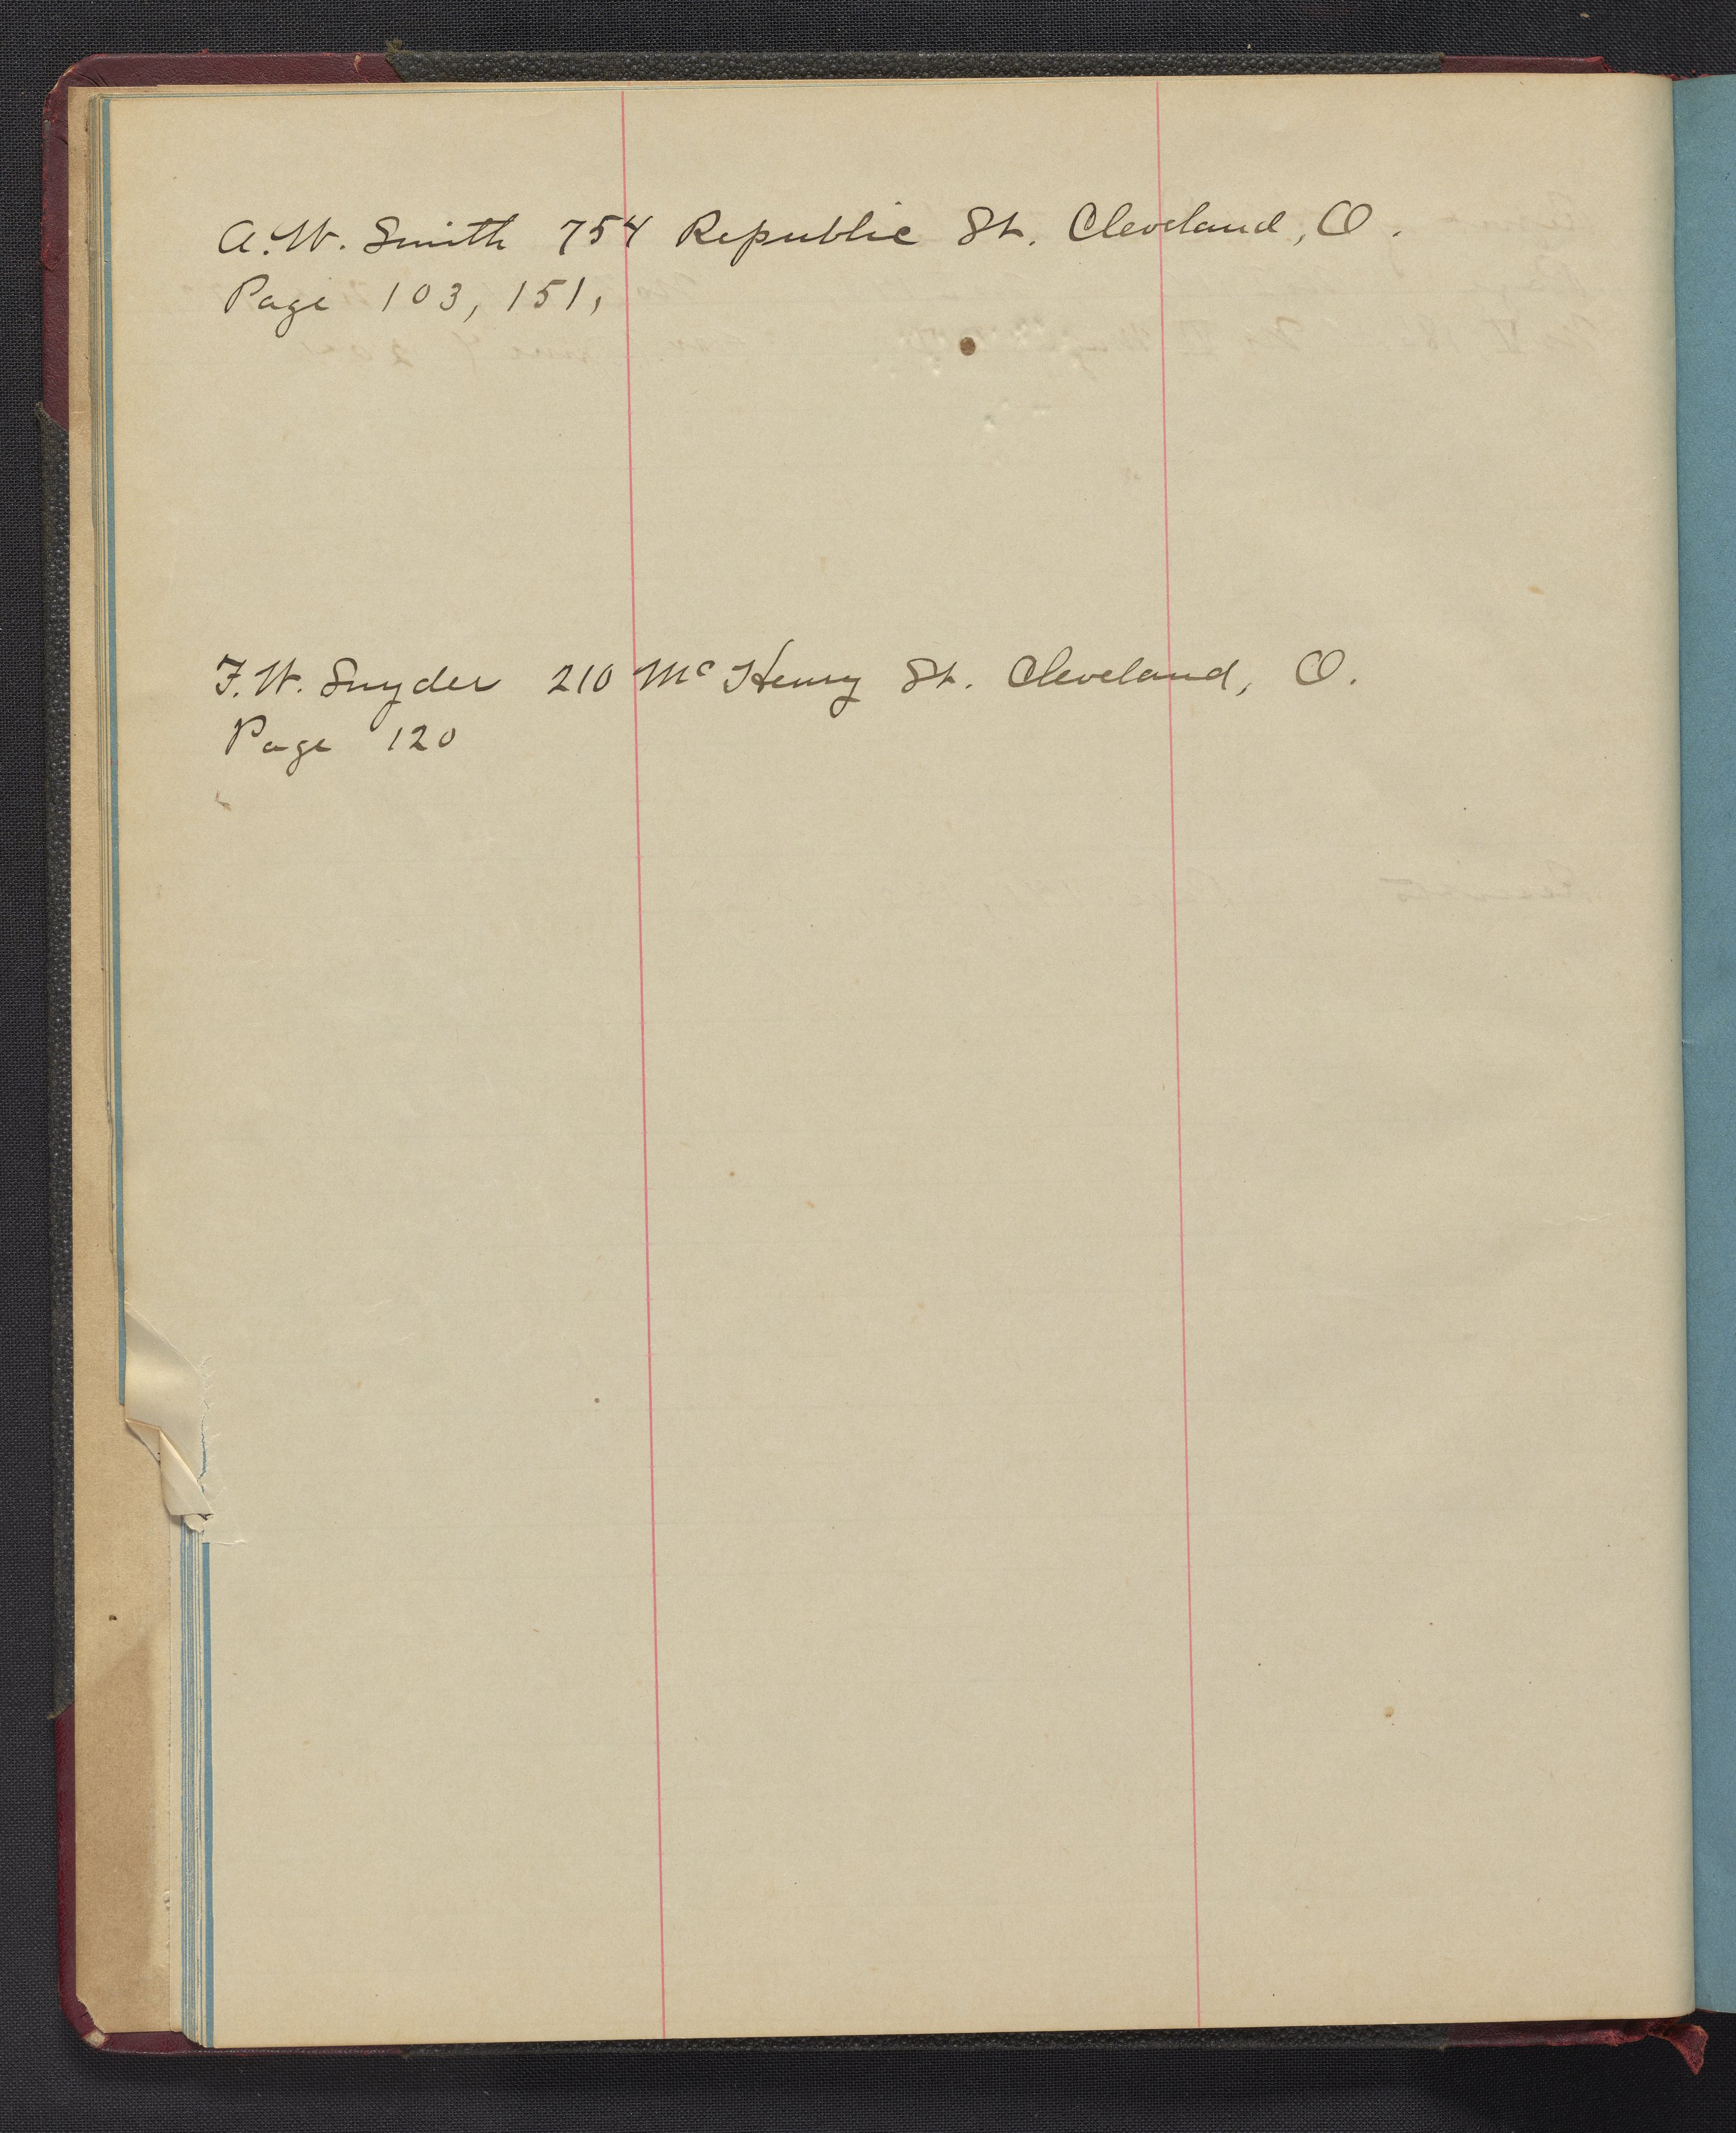 A. W. Smith 754 Republic St. Cleveland, O.
Page 103, 151,
F. W. Snyder 210 Mc Henry St. Cleveland, O.
Page 120